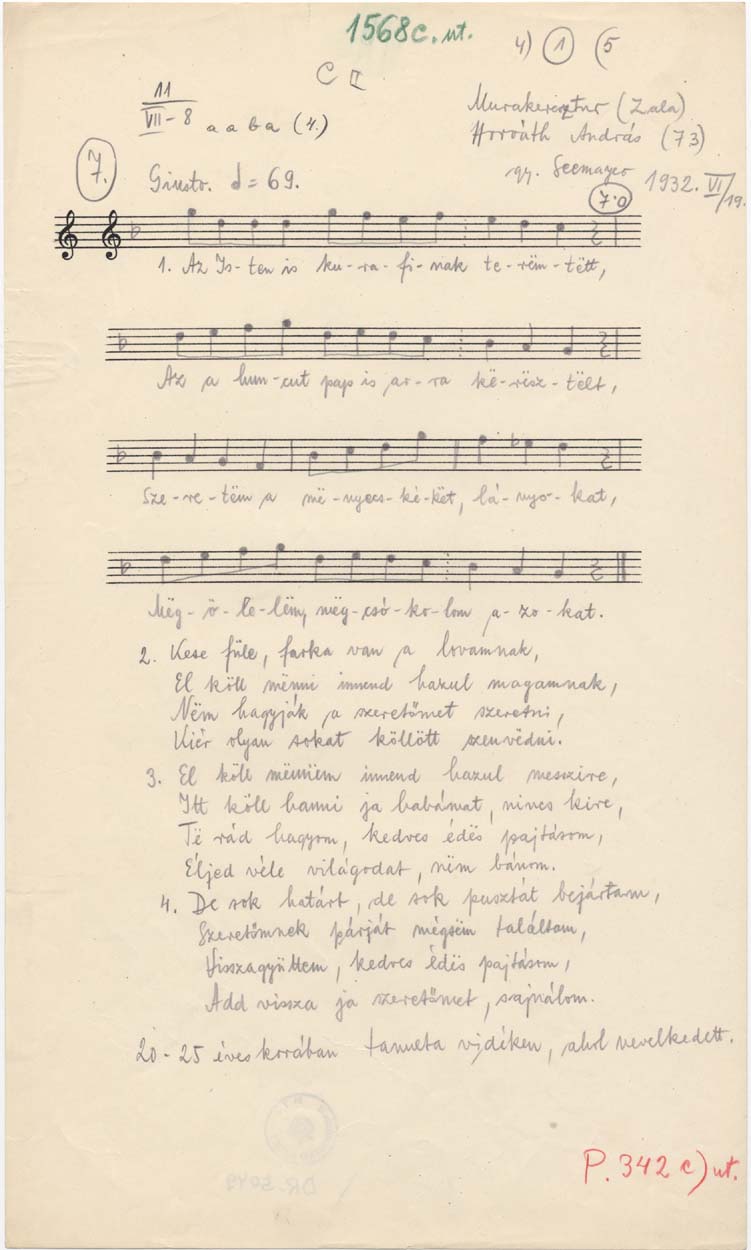 1568c. ut.
4) 1 (5
C II
11
VII-8 a a b a (4.)
Murakeresztur (Zala)
Horváth András (73)
gy. Seemayer 1932. VI/19.
7.
Giusto. = 69.
7·0
1. Az Is-ten is ku-ra-fi-nak te-rëm-tëtt,
Az a hun-cut pap is ar-ra kë-rësz-tëlt,
Sze-re-tëm a më-nyecs-ké-két, lá-nyo-kat,
Mëg-ö-le-lëm, mëg-csó-ko-lom a-zo-kat.
2. Kese füle, farka van a lovamnak,
El köll mënni innend hazul magamnak,
Nëm hagyják a szeretőmet szeretni,
Kiér olyan sokat köllött szenvedni.
3. El köll mënnëm innend hazul messzire,
Itt köll hanni ja babámat, nincs kire,
Të rád hagyom, kedves édës pajtásom,
Éljed véle világodat, nëm bánom.
4. De sok határt, de sok pusztát bejártam,
Szeretőmnek párját mégsëm találtam,
Visszagyüttem, kedves édës pajtásom,
Add vissza ja szeretőmet, sajnálom.
20-25 éves korában tanulta vidéken, ahol nevelkedett.
P. 342 c) ut.